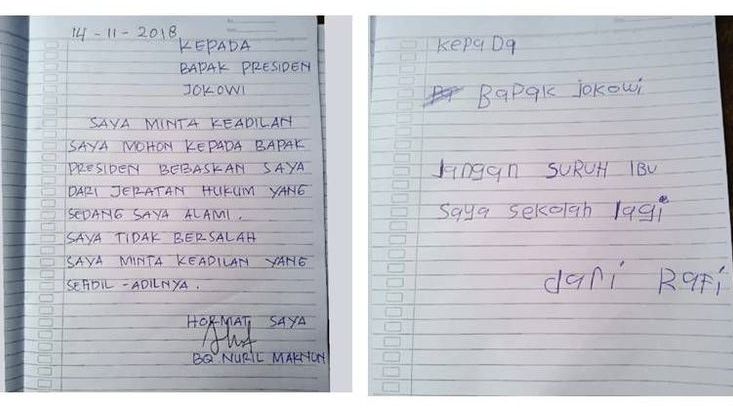 14-11-2018
KEPADA
BAPAK PRESIDEN
JOKOWI
SAYA MINTA KEADILAN
SAYA MOHON KEPADA BAPAK
PRESIDEN BEBASKAN SAYA
DARI JERATAN HUKUM YANG
SEDANG SAYA ALAMI.
SAYA TIDAK BERSALAH
SAYA MINTA KEADILAN YANG
SEADIL-ADILNYA.
HORMAT SAYA
BQ NURIL MAKNUN
kepaDa
Bapak jokowi
Jangan SURUH IBU
Saya Sekolah lagi
dari Rafi